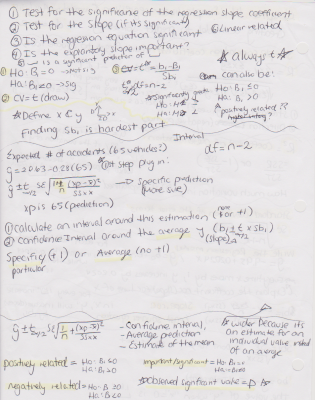 ① Test for the significance of the regression slope coefficient
② Test for the slope (if its significant)
③ Is the regession equation significant ⑥ Linear related
④ Is the explantory slope important?
⑤ is a significant predictor of
☆ always t ☆
① Ho: B₁=0 → not sig
Ha: B₁≠0 → sig
② CV=t (draw)
③ t* = b₁-B₁ / Sb₁
df=n-2
can also be:
Ho: B₁ ≤0
Ha: B₁ >0
☆ positively related ??
☆ Define x & y
Finding Sb₁ is hardest part
Interval
Expected # of accidents (65 vehicles?)
df = n-2
1st step plug in:
→ Specific prediction
(more sure)
xp is 65 (prediction)
① Calculate an interval around this estimation (now for +1)
② Confidence Interval around the average y (b₁ ± t × Sb₁)
(slope)
Specific (+1) or Average (no +1)
particular
- Confidence interval,
- Average prediction
- Estimate of the mean
☆ wider because its
an estimate for an
individual value insted
of an average
positively related = Ho: B₁≤0
Ha: B₁>0
important/significant = Ho: B₁=0
Ha: B₁≠0
negatively related = Ho: B₁≥0
Ha: B₁<0
☆ Observed significant value = P ☆